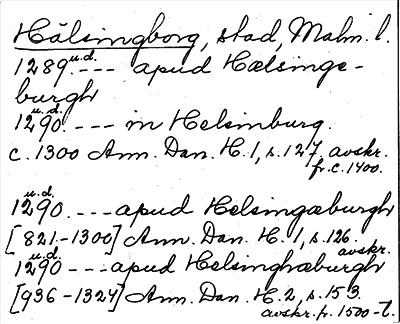 Hälsingborg, stad, Malm. l.
1289 u.d. --- apud Hælsinge-
burgh
u.d.
1290. --- in Helsinburg.
c. 1300 Ann. Dan. H. 1, s. 127, avskr.
fr. c. 1400.
u.d.
1290. --- apud Helsingæburgh
[821-1300] Ann. Dan. H. 1, s. 126.
u.d. avskr.
1290 --- apud Helsinghæburgh
[936-1324] Ann. Dan. H. 2, s. 153.
avskr. fr. 1500-t.